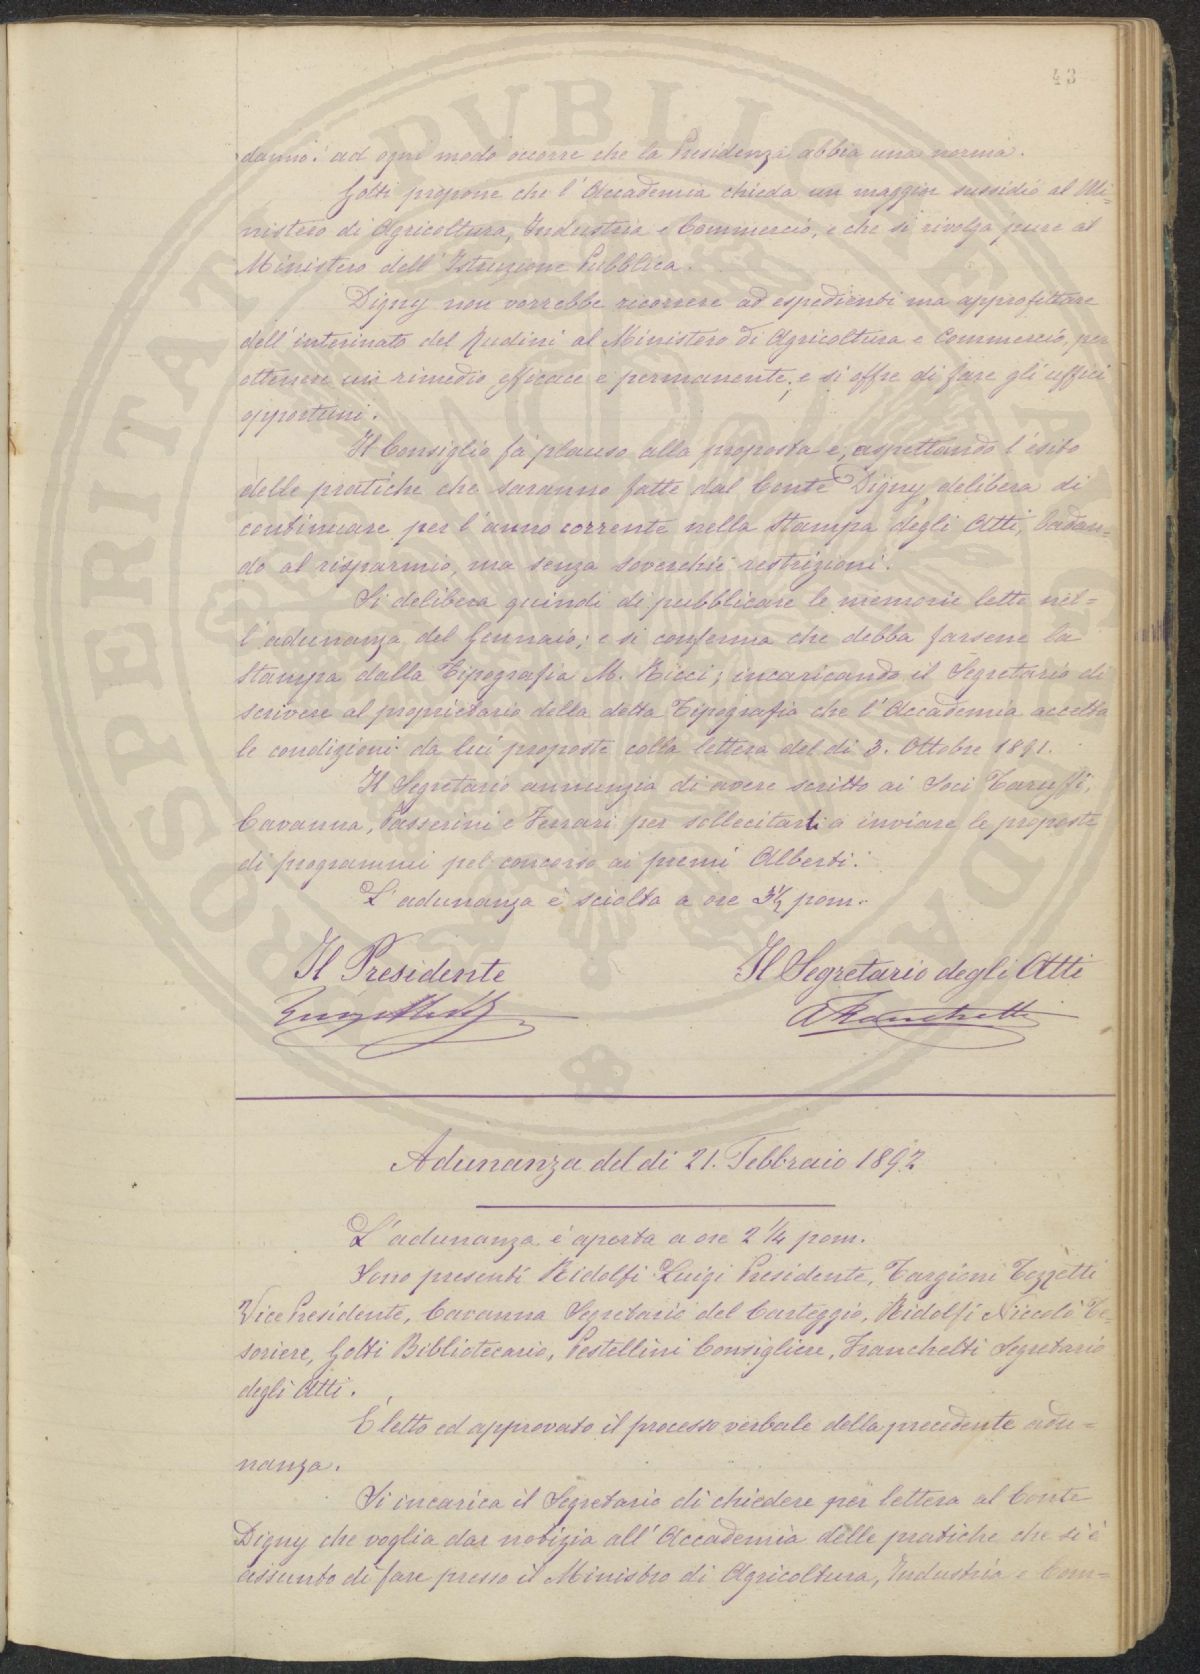 43
danno: ad ogni modo occorre che la Presidenza abbia una norma.
Gotti propone che l'Accademia chieda un maggior sussidio al Mi=
nistero di Agricoltura, Industria e Commercio, e che si rivolga pure al
Ministero dell'Istruzione Pubblica.
Digny non vorrebbe ricorrere ad espedienti ma approfittare
dell'interinato del Rudinì al Ministero di Agricoltura e Commercio, per
ottenere un rimedio efficace e permanente; e si offre di fare gli uffici
opportuni.
Il Consiglio fa plauso alla proposta e, aspettando l'esito
delle pratiche che saranno fatte dal Conte Digny, delibera di
continuare per l'anno corrente nella stampa degli Atti, badan=
do al risparmio, ma senza soverchie restrizioni.
Si delibera quindi di pubblicare le memorie lette nel=
l'adunanza del Gennaio; e si conferma che debba farsene la
stampa dalla Tipografia M. Ricci; incaricando il Segretario di
scrivere al proprietario della detta Tipografia che l'Accademia accetta
le condizioni da lui proposte colla lettera del dì 3. Ottobre 1891.
Il Segretario annunzia di avere scritto ai Soci Taruffi,
Cavanna, Passerini e Ferrari per sollecitarli a inviare le proposte
di programmi pel concorso ai premi Alberti.
L'adunanza è sciolta a ore 3½ pom.
Il Presidente
Il Segretario degli Atti
A Franchetti
Adunanza del dì 21. Febbraio 1892
L'adunanza è aperta a ore 2 ¼ pom.
Sono presenti Ridolfi Luigi Presidente, Targioni Tozzetti
Vice Presidente, Cavanna Segretario del Carteggio, Ridolfi Niccolò Te=
soriere, Gotti Bibliotecario, Pestellini Consigliere, Franchetti Segretario
degli Atti.
È letto ed approvato il processo verbale della precedente adu=
nanza.
Si incarica il Segretario di chiedere per lettera al Conte
Digny che voglia dar notizia all'Accademia delle pratiche che si è
assunto di fare presso il Ministro di Agricoltura, Industria e Com=